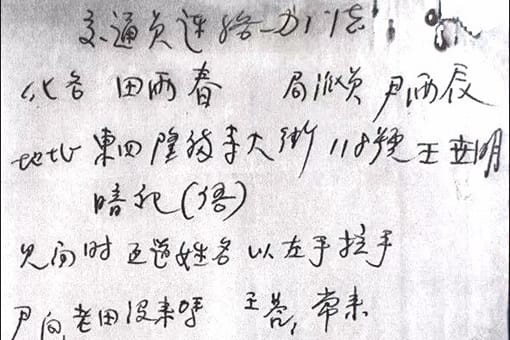 交通员连络办法
化名 田雨春 局派员 尹雨辰
地址 東四隆福寺大街 118號 王
暗記(语)
见面时 互道姓名 以左手拉手
尹问 老田没来吗 王答, 常来